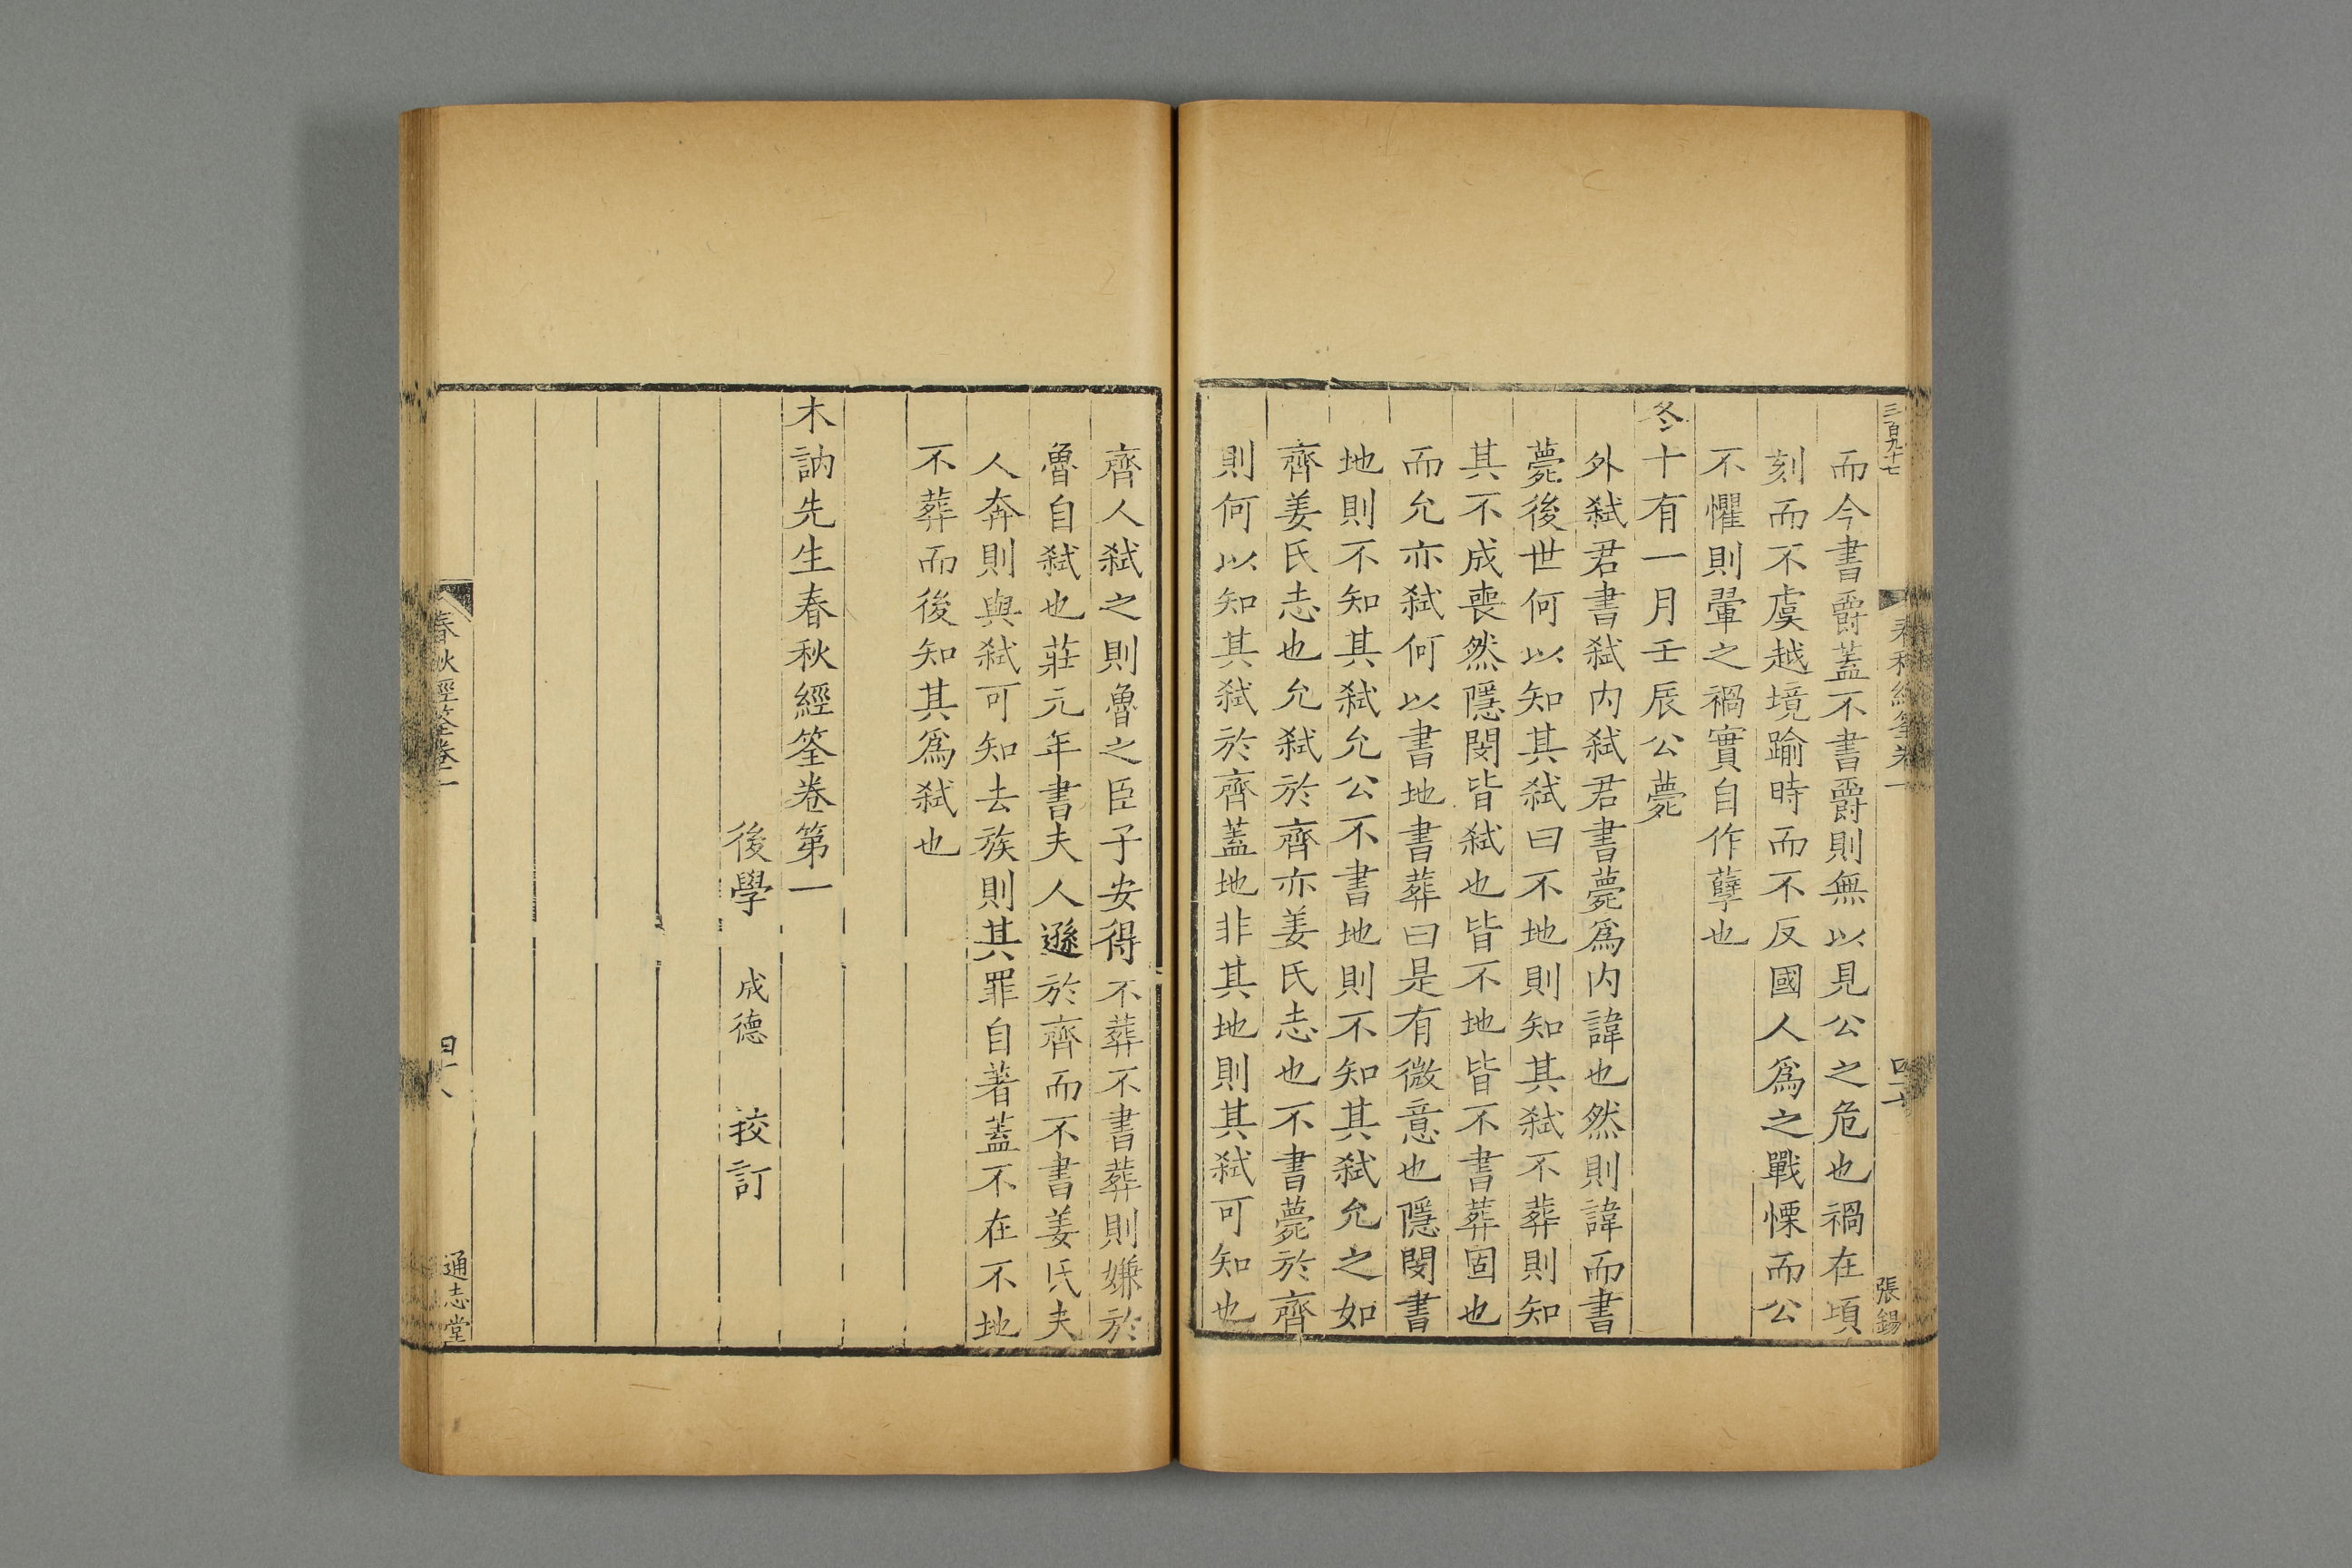 三百九十七
張錫
而今書爵蓋不書爵則無以見公之危也禍在頃
刻而不虞越境踰時而不反國人爲之戰慄而公
不懼則翬之禍實自作孽也
冬十有一月壬辰公薨
外弑君書弑内弑君書薨爲内諱也然則諱而書
薨後世何以知其弑曰不地則知其弑不葬則知
其不成喪然隱閔皆弑也皆不地皆不書葬固也
而允亦弑何以書地書葬曰是有微意也隱閔書
地則不知其弑允公不書地則不知其弑允之如
齊姜氏志也允弑於齊亦姜氏志也不書薨於齊
則何以知其弑於齊蓋地非其地則其弑可知也
齊人弑之則魯之臣子安得不葬不書葬則嫌於
魯自弑也莊元年書夫人遜於齊而不書姜氏夫
人奔則與弑可知去族則其罪自著蓋不在不地
不葬而後知其爲弑也
木訥先生春秋經筌卷第一
後學 成德 挍訂
春秋經筌卷一
通志堂